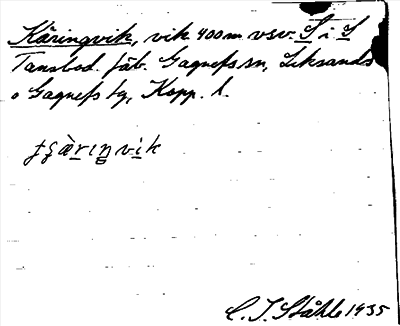 Käringvik, vik 400 m vsv. S i S
Tansbod. fäb. Gagnefs sn, Leksands
o Gagnefs tg, Kopp. l.
C. I. Ståhle 1935